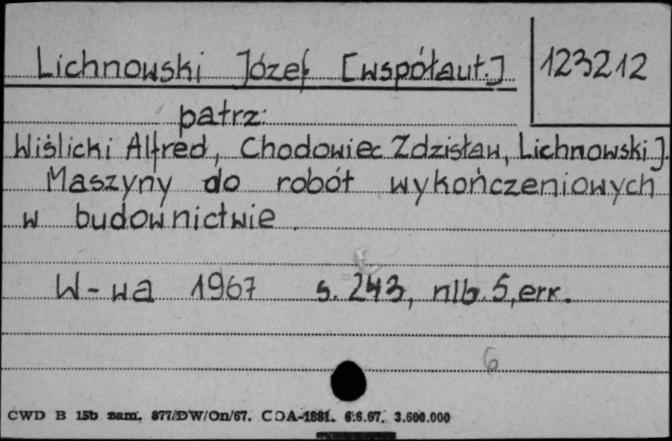 Lichnowski Józef [współaut.] 123212
patrz:
Wiślicki Alfred, Chodowiec Zdzisław, Lichnowski J.
Maszyny do robót wykończeniowych
w budownictwie.
W-wa 1967 s. 243, nlb. 5, err.
6
CWD B 15b zam. 877/DW/On/67. CDA-1881. 6.6.67. 3.600.000